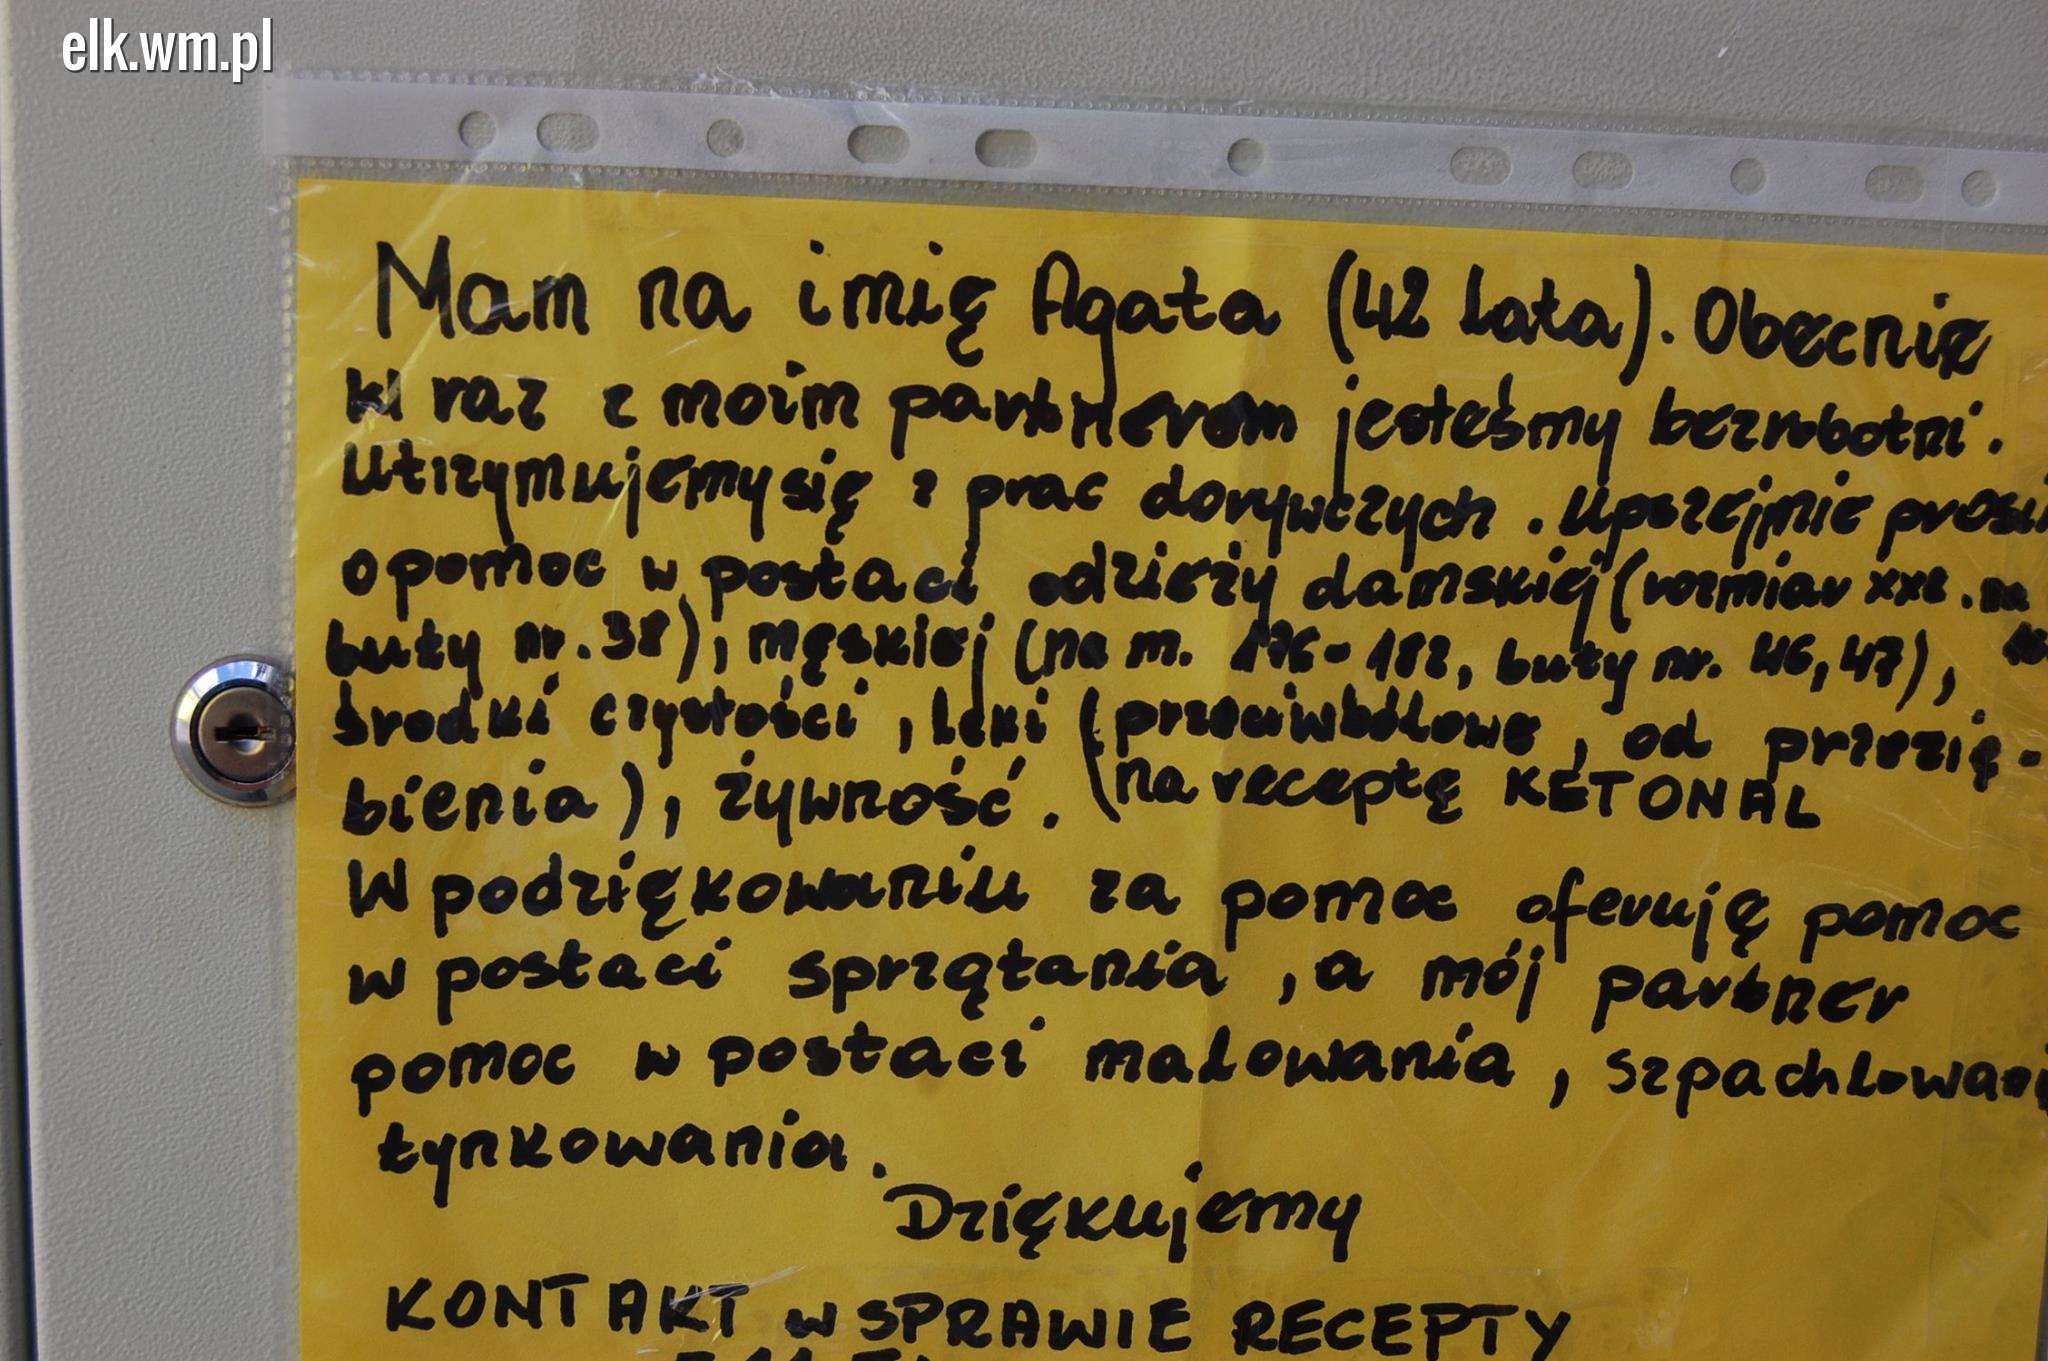 elk.wm.pl
Mam na imię Agata (42 lata). Obecnie
wraz z moim partnerem jesteśmy bezrobotni.
Utrzymujemy się z prac dorywczych. Uprzejmie prosi
o pomoc w postaci odzieży damskiej (rozmiar XXL. na
buty nr. 38), męskiej (na m. 176-182, buty nr. 46, 47),
środki czystości, leki (przeciwbólowe, od przezię-
bienia), żywność. (na receptę KETONAL
W podziękowaniu za pomoc oferuję pomoc
w postaci sprzątania, a mój partner
pomoc w postaci malowania, szpachlowani
tynkowania.
Dziękujemy
KONTAKT W SPRAWIE RECEPTY